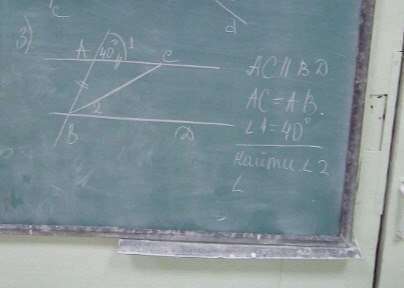 c
d
3)
A 40° 1 C
2
B D
AC || BD
AC = AB.
∠1 = 40°
Найти: ∠2
∠